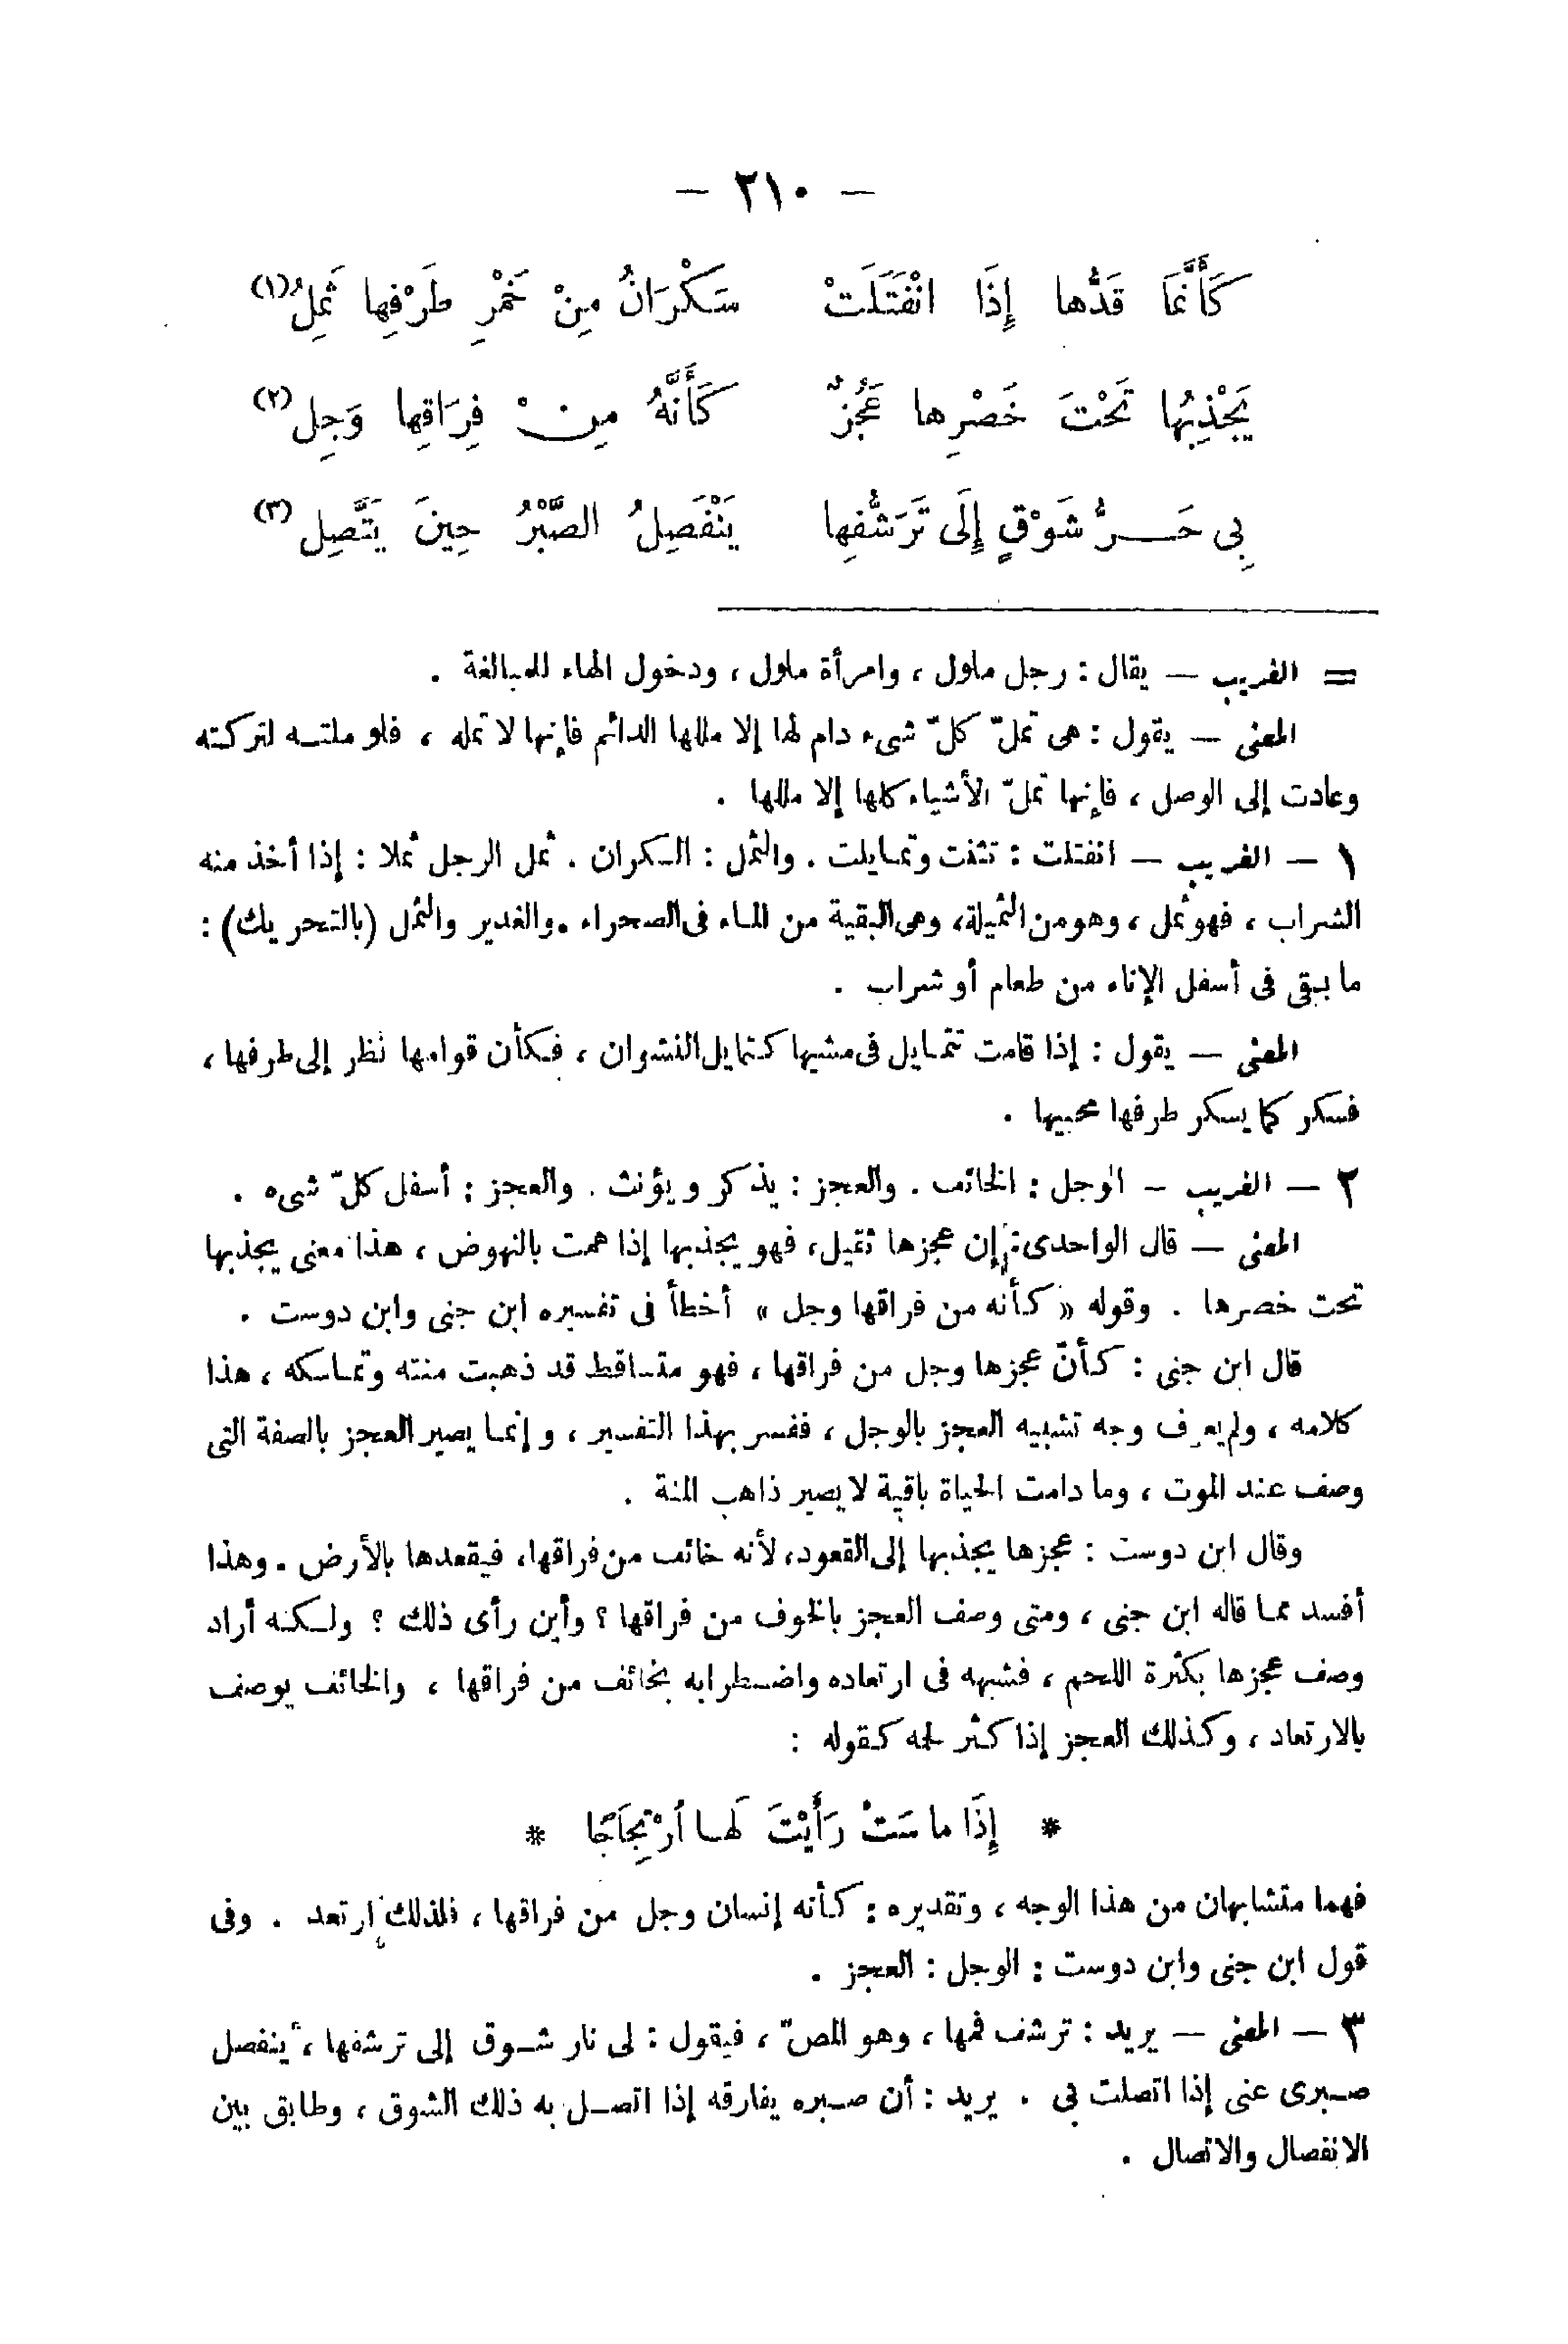 — ٢١٠ —
كَأَنَّمَا قَدُّها إِذَا انْفَتَلَتْ سَكْرَانُ مِنْ خَمْرِ طَرْفِها ثَمِلُ(١)
يَجْذِبُها تَحْتَ خَصْرِها عَجُزٌ كَأَنَّهُ مِنْ فِرَاقِها وَجِل(٢)
بِى حَرُّ شَوْقٍ إِلَى تَرَشُّفِها يَنْفَصِلُ الصَّبْرُ حِينَ يَتَّصِل(٣)
= الغريب — يقال : رجل ملول ، وامرأة ملول ، ودخول الهاء للمبالغة .
المعنى — يقول : هى تملّ كلّ شىء دام لها إلا مللها الدائم فإنها لا تمله ، فلو ملته لتركته
وعادت إلى الوصل ، فإنها تملّ الأشياء كلها إلا مللها .
١ — الغريب — انفتلت : تثنت وتمايلت . والثمل : السكران . ثمل الرجل ثملا : إذا أخذ منه
الشراب ، فهو ثمل ، وهو من الثميلة، وهى البقية من الماء فى الصحراء . والغدير والثمل (بالتحريك) :
ما يبقى فى أسفل الإناء من طعام أو شراب .
المعنى — يقول : إذا قامت تتمايل فى مشيها كتمايل النشوان ، فكأن قوامها نظر إلى طرفها ،
فسكر كما يسكر طرفها محبيها .
٢ — الغريب — الوجل : الخائف . والعجز : يذكر ويؤنث . والعجز : أسفل كلّ شىء .
المعنى — قال الواحدى : إن عجزها ثقيل، فهو يجذبها إذا همت بالنهوض ، هذا معنى يجذبها
تحت خصرها . وقوله « كأنه من فراقها وجل » أخطأ فى تفسيره ابن جنى وابن دوست .
قال ابن جنى : كأنّ عجزها وجل من فراقها ، فهو متساقط قد ذهبت منته وتماسكه ، هذا
كلامه ، ولم يعرف وجه تشبيه العجز بالوجل ، ففسر بهذا التفسير ، وإنما يصير العجز بالصفة التى
وصف عند الموت ، وما دامت الحياة باقية لا يصير ذاهب المنة .
وقال ابن دوست : عجزها يجذبها إلى القعود، لأنه خائف من فراقها، فيقعدها بالأرض . وهذا
أفسد مما قاله ابن جنى ، ومتى وصف العجز بالخوف من فراقها ؟ وأين رأى ذلك ؟ ولكنه أراد
وصف عجزها بكثرة اللحم ، فشبهه فى ارتعاده واضطرابه بخائف من فراقها ، والخائف يوصف
بالارتعاد ، وكذلك العجز إذا كثر لحمه كقوله :
* إِذَا ماسَتْ رَأَيْتَ لَها أرْتِجَاجًا *
فهما متشابهان من هذا الوجه ، وتقديره : كأنه إنسان وجل من فراقها ، فلذلك ارتعد . وفى
قول ابن جنى وابن دوست : الوجل : العجز .
٣ — المعنى — يريد : ترشف فمها ، وهو المصّ ، فيقول : لى نار شوق إلى ترشفها ، ينفصل
صبرى عنى إذا اتصلت بى . يريد : أن صبره يفارقه إذا اتصل به ذلك الشوق ، وطابق بين
الانفصال والاتصال .